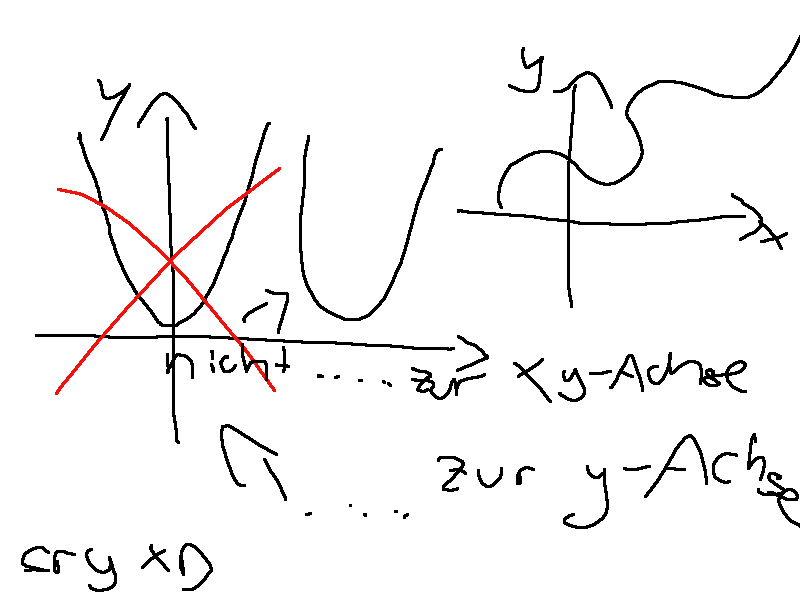 y
y
x
nicht ..... zur xy-Achse
..... zur y-Achse
cry xD